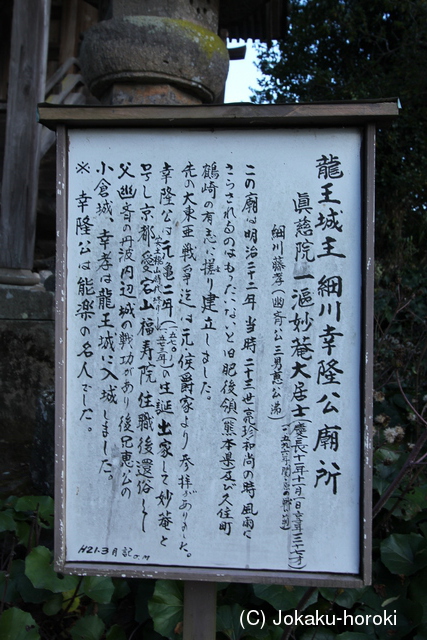 龍王城主 細川幸隆公廟所
眞慈院一滬妙菴大居士(慶長十一年十一月一日 三十七才)
細川藤孝(幽斉)公三男
この廟は明治二十二年当時二十三世亮珍和尚の時風雨に
さらされるのはもったいないと旧肥後領(熊本県及び久住町
鶴崎の有志の援り建立しました。
先の大東亜戦争迄は元侯爵家より参拝がありました。
幸隆公は元亀二年(一五七一)の生誕出家して妙菴と
号し京都、愛宕山福寿院住職後還俗し
父幽斉の丹波田辺城の戦功があり後兄忠公の
小倉城、幸孝は龍王城に入城しました。
※ 幸隆公は能楽の名人でした。
H21-3月記
(C) Jokaku-horoki